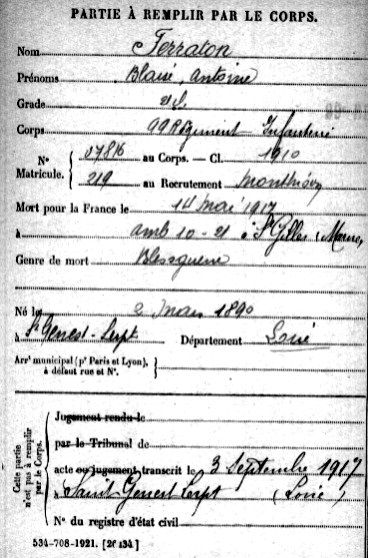 PARTIE À REMPLIR PAR LE CORPS.
Nom Terraton
Prénoms Blaise, Antoine
Grade 2d
Corps 99 Régiment Infanterie
N° Matricule. { 07816 au Corps. — Cl. 1910
219 au Recrutement Montbrison
Mort pour la France le 14 mai 1917
à amb 10-21 à St Gilles (Marne)
Genre de mort Bles guerre
Né le 2 mars 1890
à St Genest-Lerpt Département Loire
Arrt municipal (pr Paris et Lyon), à défaut rue et N°.
Cette partie n'est pas à remplir par le Corps.
Jugement rendu le
par le Tribunal de
acte ou jugement transcrit le 3 Septembre 1917
à Saint Genest Lerpt (Loire)
N° du registre d'état civil
534-708-1921. [26434]